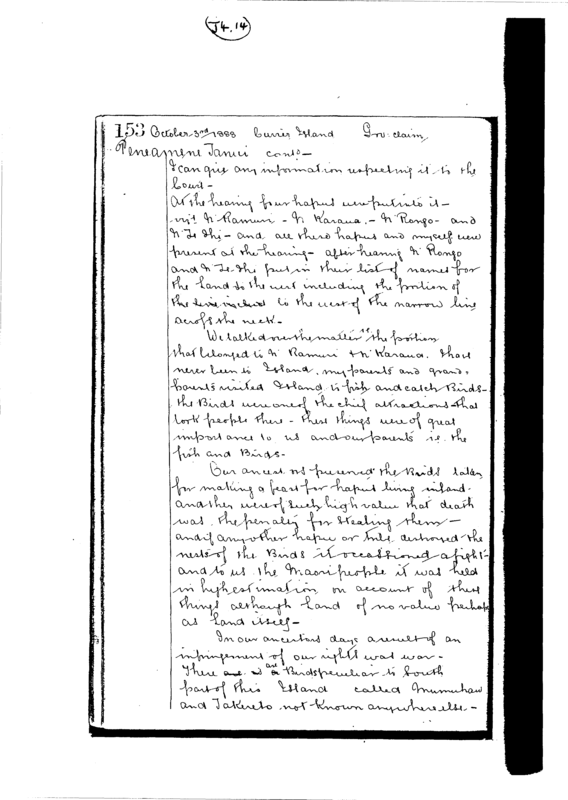 J4.14
153 October 3rd 1888 Cuvier Island Gov: claim
Tanui contd-
I can give any information respecting it to the
Court-
At the hearing four hapus were put into it-
viz N'Ramuri - N. Karaua. - N. Rongo- and
N. Te Ihi- and all these hapus and myself were
present at the hearing- after hearing N' Rongo
and N. Te Ihi put in their list of names for
the land to the west including the portion of
the to the west of the narrow line
across the neck-
We talked over the matter the portion
that belonged to N' Ramuri + N' Karaua. I have
never been to Island, my parents and grand-
parents visited Island to fish and catch Birds-
the Birds were one of the chief attractions that
took people there- these things were of great
importance to us and our parents ie the
fish and Birds-
Our ancestors preserved the Birds taken
for making a feast for hapus living inland-
and they were of such high value that death
was the penalty for stealing them-
and if any other hapu or tribe destroyed the
nests of the Birds it occassioned a fight-
and to us the Maori people it was held
in high estimation on account of these
things although land of no value perhaps
as land itself-
In our ancestors days a result of an
infringement of our rights was war-
There are Birds peculiar to South
part of this Island called Mumuhau
and Takereto not known anywhere else.-